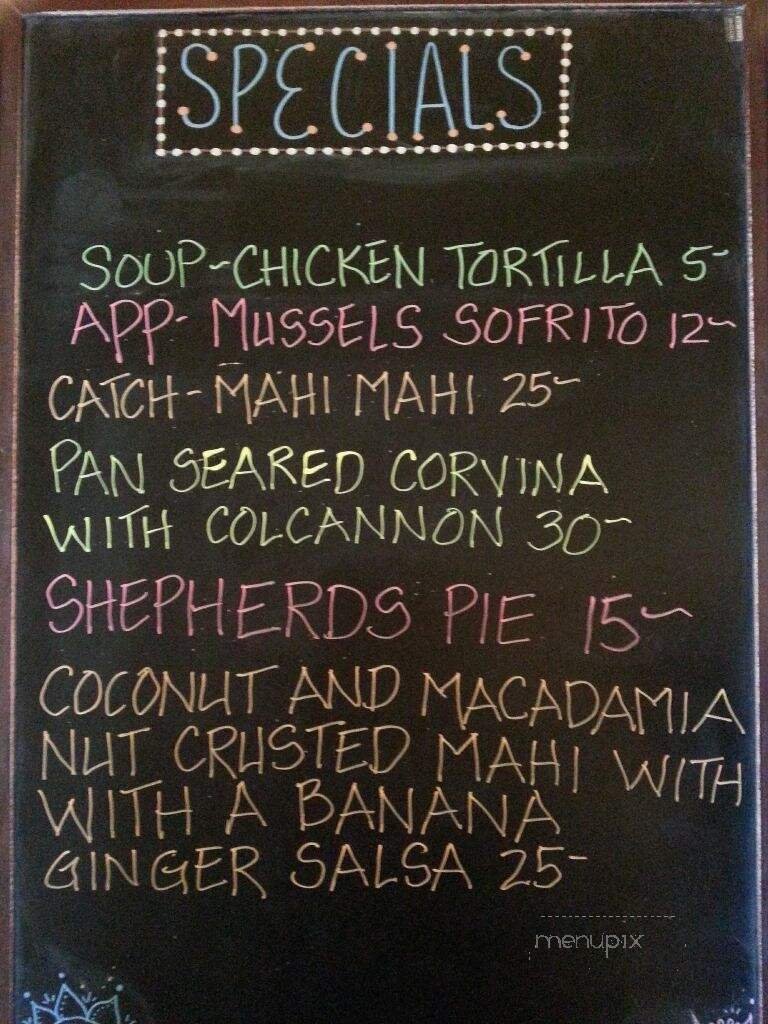 SPECIALS
SOUP-CHICKEN TORTILLA 5-
APP- MUSSELS SOFRITO 12~
CATCH-MAHI MAHI 25~
PAN SEARED CORVINA
WITH COLCANNON 30~
SHEPHERDS PIE 15~
COCONUT AND MACADAMIA
NUT CRUSTED MAHI WITH
WITH A BANANA
GINGER SALSA 25-
menupix